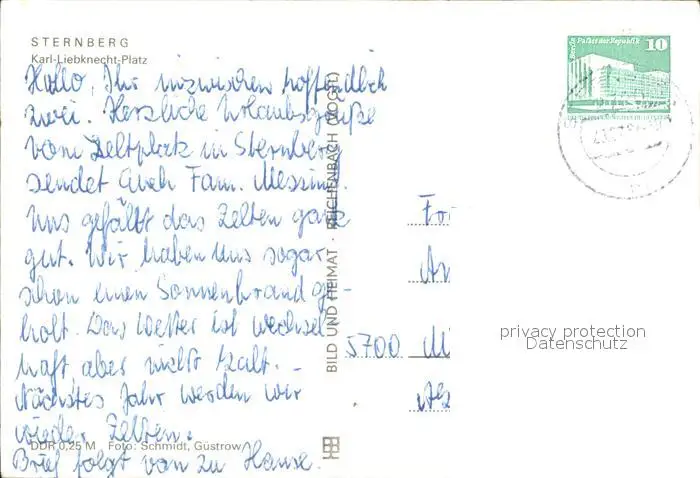 STERNBERG
Karl-Liebknecht-Platz
Hallo, Ihr inzwischen hoffendlich
zwei. Herzliche Urlaubsgrüße
vom Zeltplatz in Sternberg
sendet Euch Fam. Messing.
Uns gefällt das Zelten ganz
gut. Wir haben uns sogar
schon einen Sonnenbrand ge-
holt. Das Wetter ist wechsel
haft, aber nicht kalt. -
Nächstes Jahr werden wir
wieder Zelten.
DDR 0,25 M Foto: Schmidt, Güstrow
Brief folgt von zu Hause.
BILD UND HEIMAT · REICHENBACH (VOGTL)
Berlin, Palast der Republik 10
5700 M
privacy protection
Datenschutz